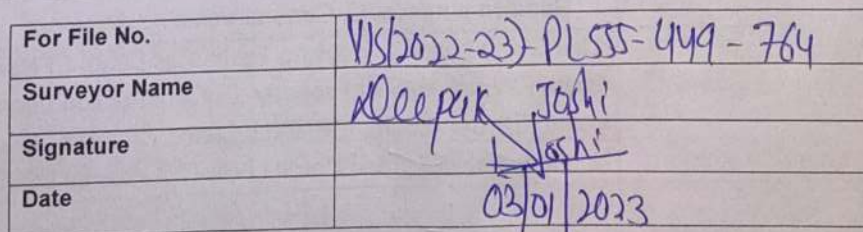 For File No. VIS(2022-23)-PL555-449-764
Surveyor Name Deepak Joshi
Signature Joshi
Date 03/01/2023